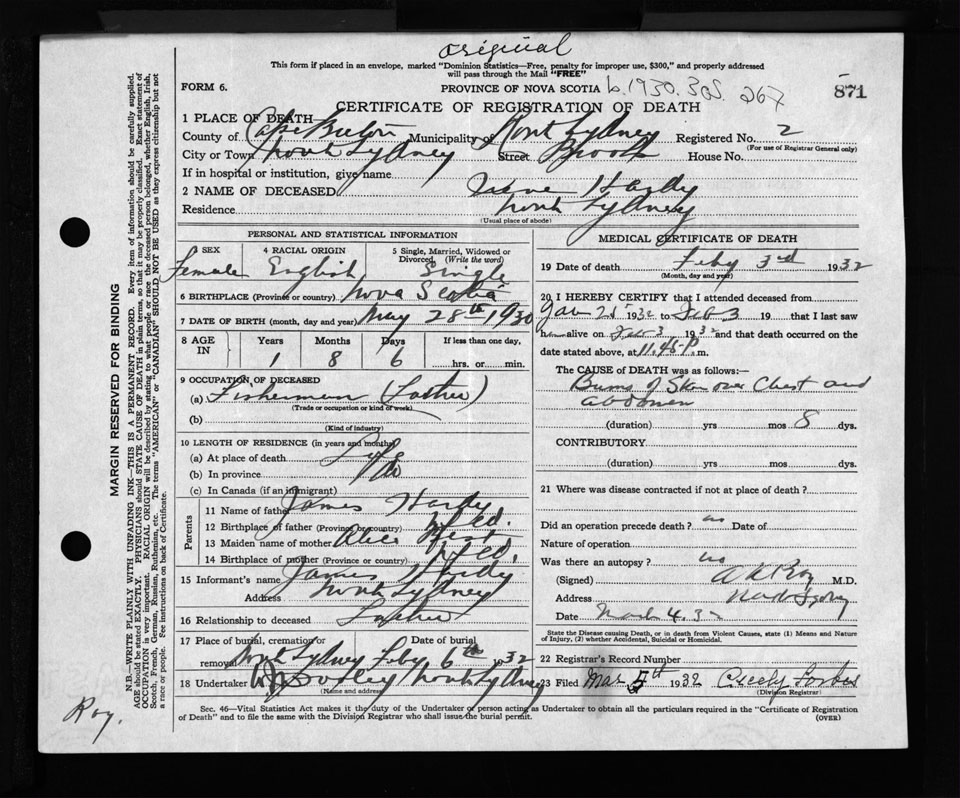 Original
This form if placed in an envelope, marked "Dominion Statistics—Free, penalty for improper use, $300," and properly addressed
will pass through the Mail "FREE"
FORM 6. PROVINCE OF NOVA SCOTIA b. 1930. 267 871
CERTIFICATE OF REGISTRATION OF DEATH
1 PLACE OF DEATH—
County of Cape Breton Municipality of North Sydney Registered No. 2
(For use of Registrar General only)
City or Town North Sydney Street Brook House No.
If in hospital or institution, give name
2 NAME OF DECEASED Irene Hardy
Residence North Sydney
(Usual place of abode)
PERSONAL AND STATISTICAL INFORMATION
3 SEX 4 RACIAL ORIGIN 5 Single, Married, Widowed or Divorced (Write the word)
Female English Single
6 BIRTHPLACE (Province or country) Nova Scotia
7 DATE OF BIRTH (month, day and year) May 28th 1930
8 AGE IN Years Months Days If less than one day,
1 8 6 hrs. or min.
9 OCCUPATION OF DECEASED
(a) Fisherman (Father)
(Trade or occupation or kind of work)
(b)
(Kind of industry)
10 LENGTH OF RESIDENCE (in years and months)
(a) At place of death Life
(b) In province Do
(c) In Canada (if an immigrant)
Parents
11 Name of father James Hardy
12 Birthplace of father (Province or country) Nfld.
13 Maiden name of mother Alice West
14 Birthplace of mother (Province or country) Nfld.
15 Informant's name James Hardy
Address North Sydney
16 Relationship to deceased Father
17 Place of burial, cremation or removal North Sydney Date of burial Feby 6th 1932
18 Undertaker North Sydney
(Name and address)
MEDICAL CERTIFICATE OF DEATH
19 Date of death Feby 3rd 1932
(Month, day and year)
20 I HEREBY CERTIFY that I attended deceased from
Jan 25 1932 to Feb 3 19 that I last saw
h alive on Feb 3 1932 and that death occurred on the
date stated above, at 11.45 P m.
The CAUSE of DEATH was as follows:—
Burns of Skin over Chest and
abdomen
(duration) yrs mos 8 dys.
CONTRIBUTORY
(duration) yrs mos dys.
21 Where was disease contracted if not at place of death?
Did an operation precede death? no Date of
Nature of operation
Was there an autopsy? no
(Signed) A K Roy M.D.
Address North Sydney
Date March 4. 32
State the Disease causing Death, or in death from Violent Causes, state (1) Means and Nature
of Injury, (2) whether Accidental, Suicidal or Homicidal.
22 Registrar's Record Number
23 Filed Mar 5th 1932 Cicely Forbes
(Division Registrar)
Sec. 46—Vital Statistics Act makes it the duty of the Undertaker or person acting as Undertaker to obtain all the particulars required in the "Certificate of Registration
of Death" and to file the same with the Division Registrar who shall issue the burial permit. (OVER)
MARGIN RESERVED FOR BINDING
N.B.—WRITE PLAINLY WITH UNFADING INK—THIS IS A PERMANENT RECORD. Every item of information should be carefully supplied.
AGE should be stated EXACTLY. PHYSICIANS should STATE CAUSE OF DEATH in plain terms, so that it may be properly classified. Exact statement of
OCCUPATION is very important. RACIAL ORIGIN will be described by stating to what people or race the deceased person belonged, whether English, Irish,
Scotch, French, German, Russian, Ruthenian, etc. The terms "AMERICAN" or "CANADIAN" SHOULD NOT BE USED as they express citizenship but not
a race or people. Fee instructions on back of Certificate.
Roy.